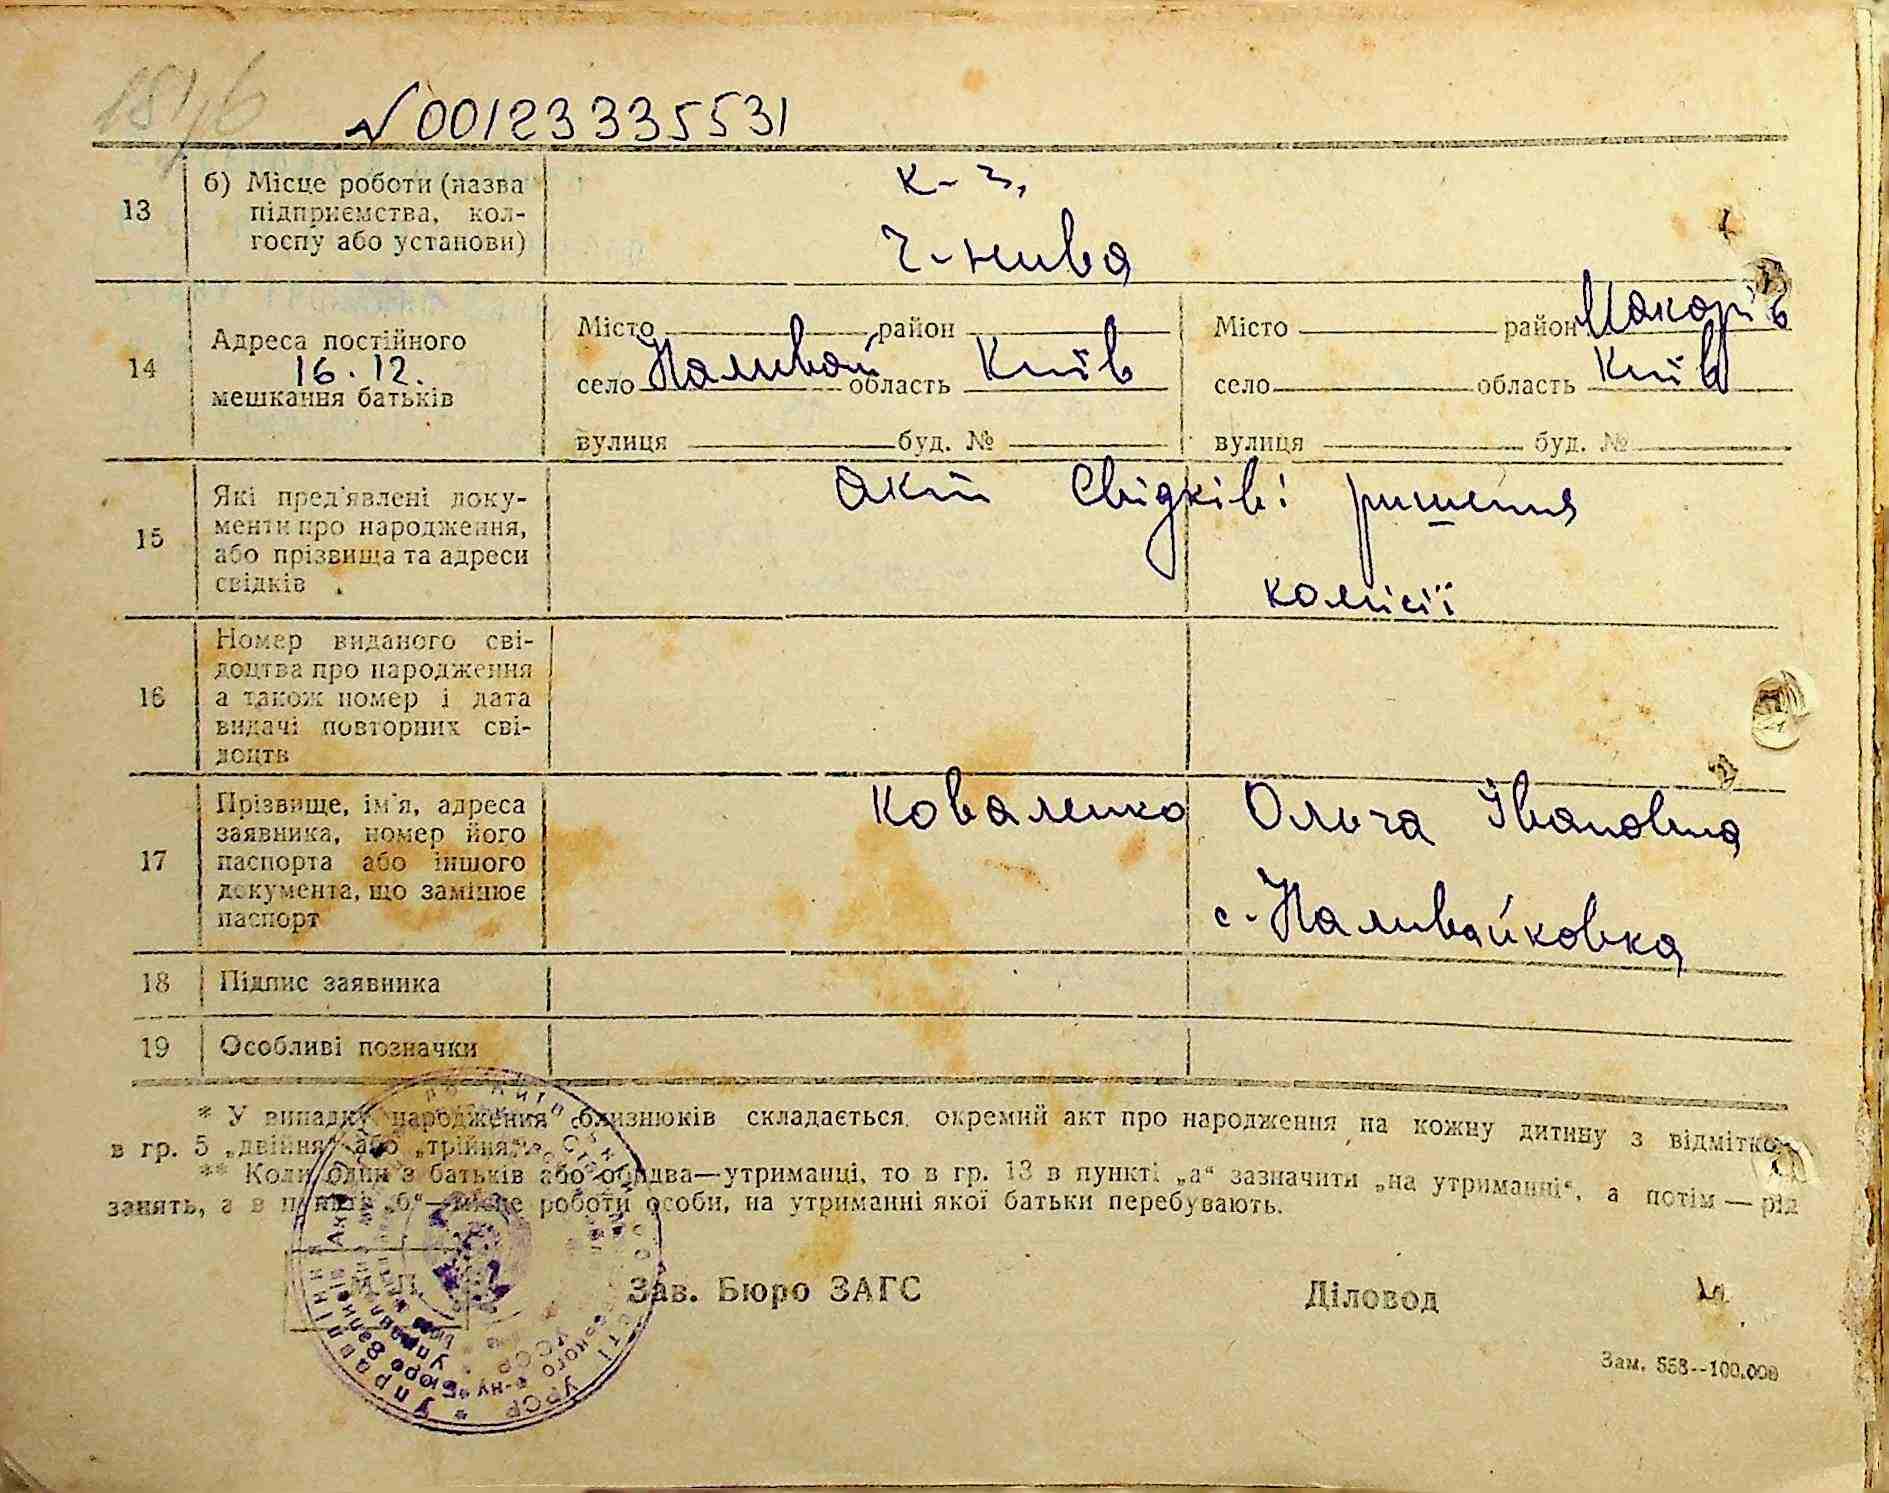 №00123335531
13
б) Місце роботи (назва
підприємства, кол-
госпу або установи)
к-з,
Ч-нива
14
Адреса постійного
16.12.
мешкання батьків
Місто район
село Наливай область Київ
вулиця буд. №
Місто район Макарів
село область Київ
вулиця буд. №
15
Які пред'явлені доку-
менти про народження,
або прізвища та адреси
свідків
Акт Свідків: ришення
комісії
16
Номер виданого сві-
доцтва про народження
а також номер і дата
видачі повторних сві-
доцтв
17
Прізвище, ім'я, адреса
заявника, номер його
паспорта або іншого
документа, що замінює
паспорт
Коваленко Ольга Івановна
с. Наливайковка
18
Підпис заявника
19
Особливі позначки
* У випадку народження близнюків складається окремий акт про народження на кожну дитину з відміткою
в гр. 5 „двійня“ або „трійня“.
** Коли один з батьків або обидва—утриманці, то в гр. 13 в пункті „а“ зазначити „на утриманні“, а потім — рід
занять, а в пункті „б“—місце роботи особи, на утриманні якої батьки перебувають.
М. П.
Зав. Бюро ЗАГС
Діловод
Зам. 558--100.000